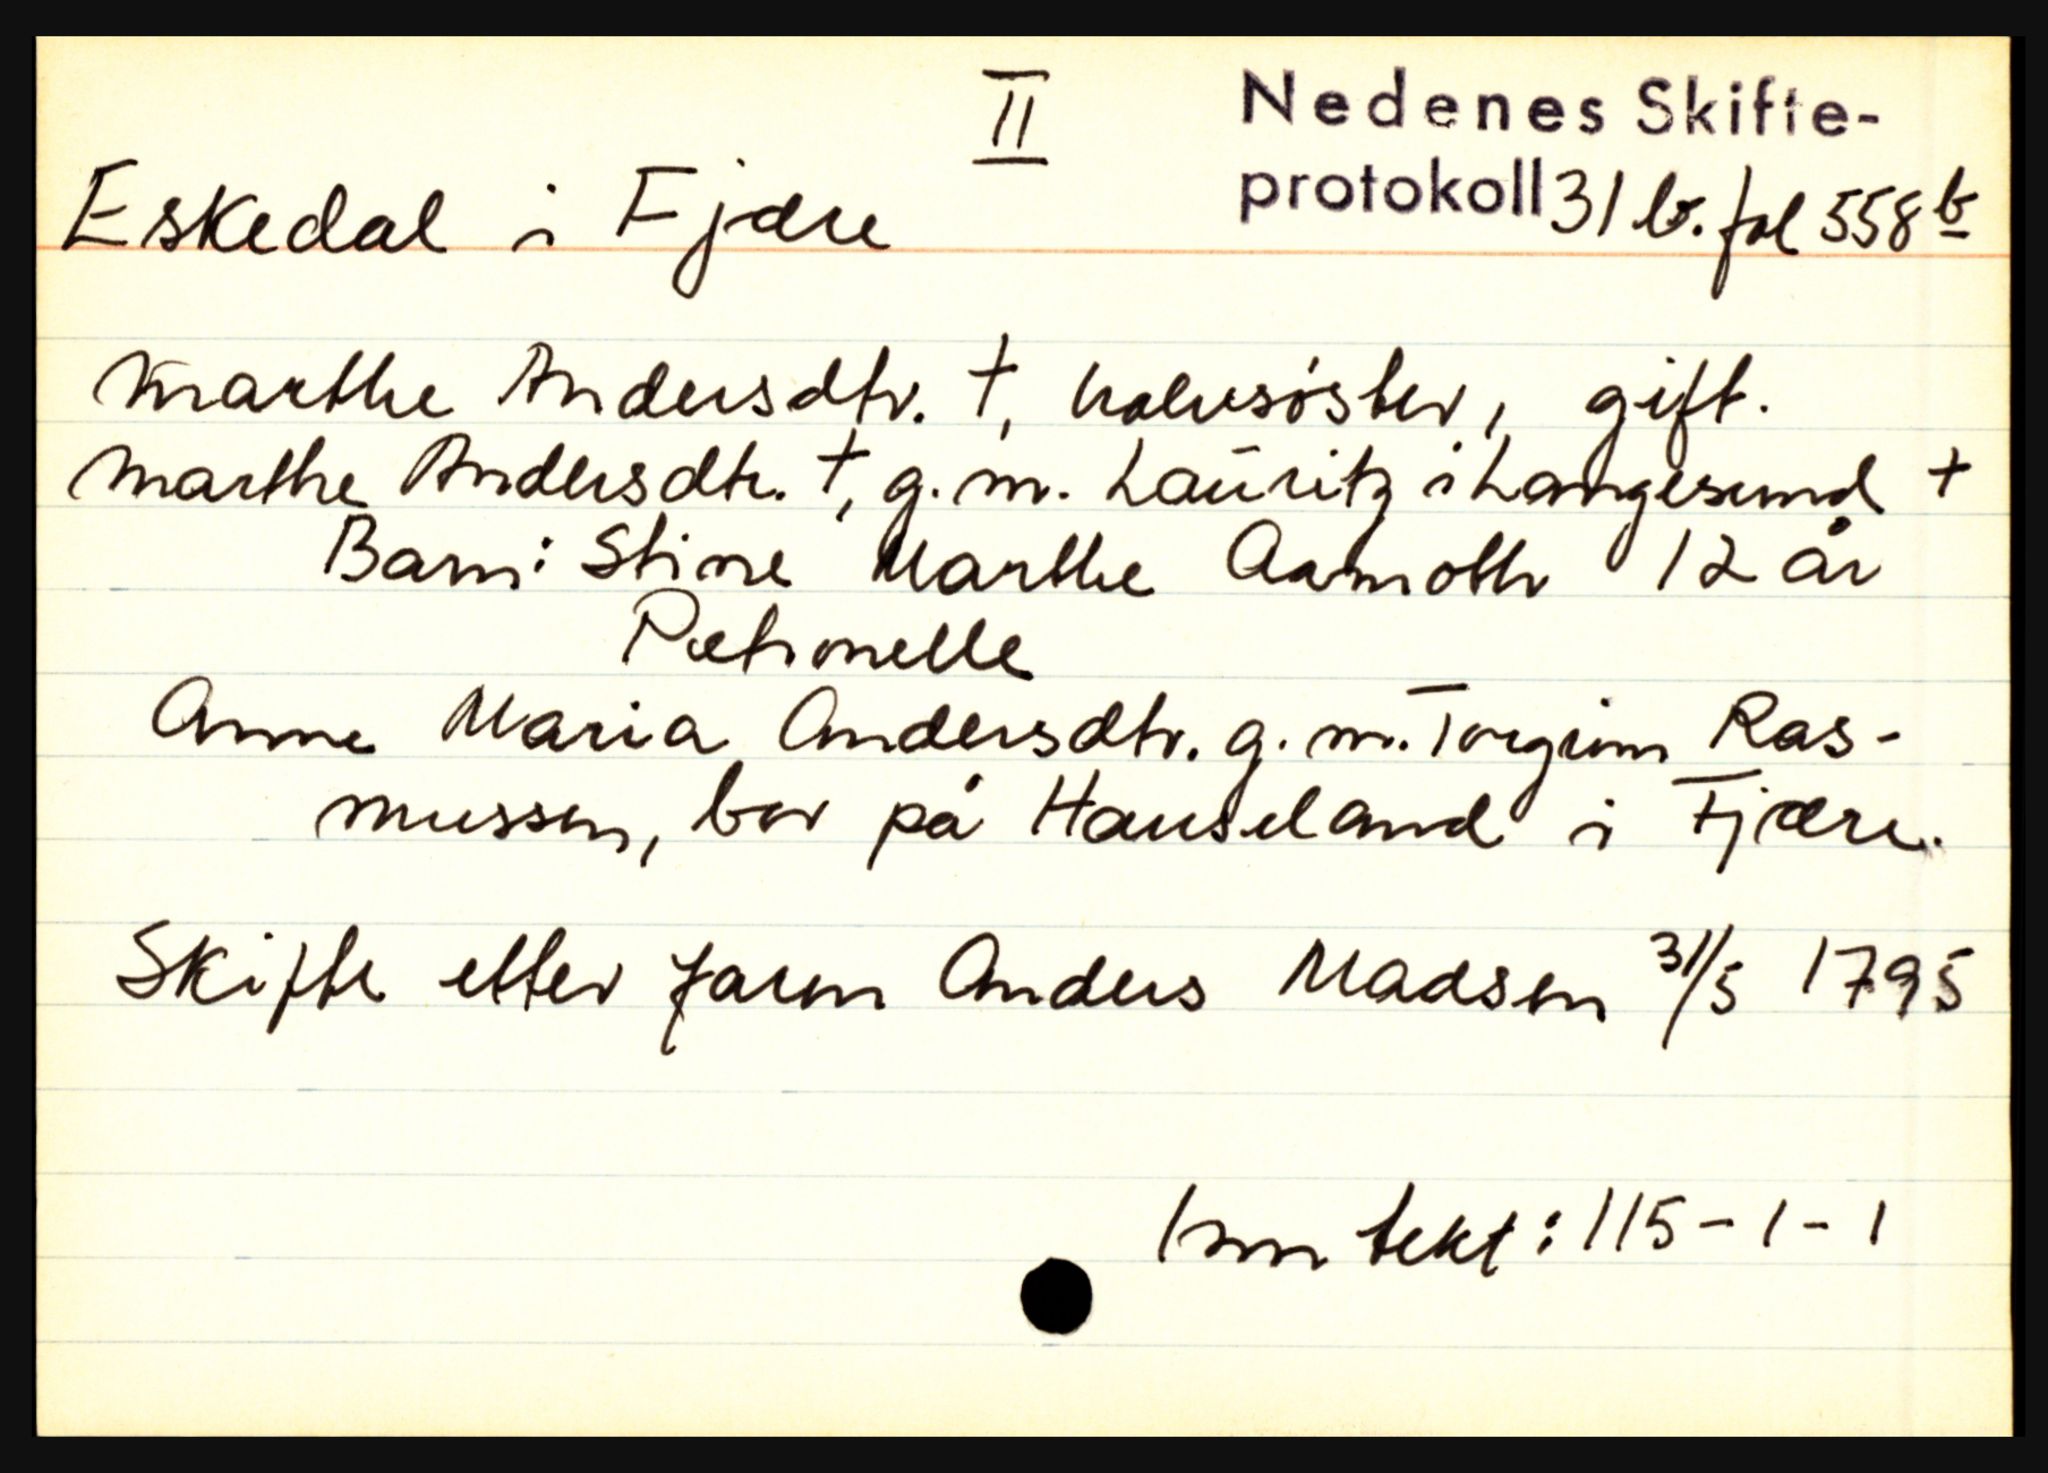 II
Nedenes Skifte-
protokoll 31 b. fol 558 b
Eskedal i Fjære
Marthe Andersdtr. †, halvsøster, gift.
Marthe Andersdtr. †, g. m. Lauritz i Langesund †
Barn: Stine Marthe 12 år
Petronelle
Anne Maria Andersdtr. g. m. Torgrim Ras-
mussen, bor på Hauseland i Fjære.
Skifte etter faren Anders Madsen 31/5 1795
Inntekt: 115-1-1